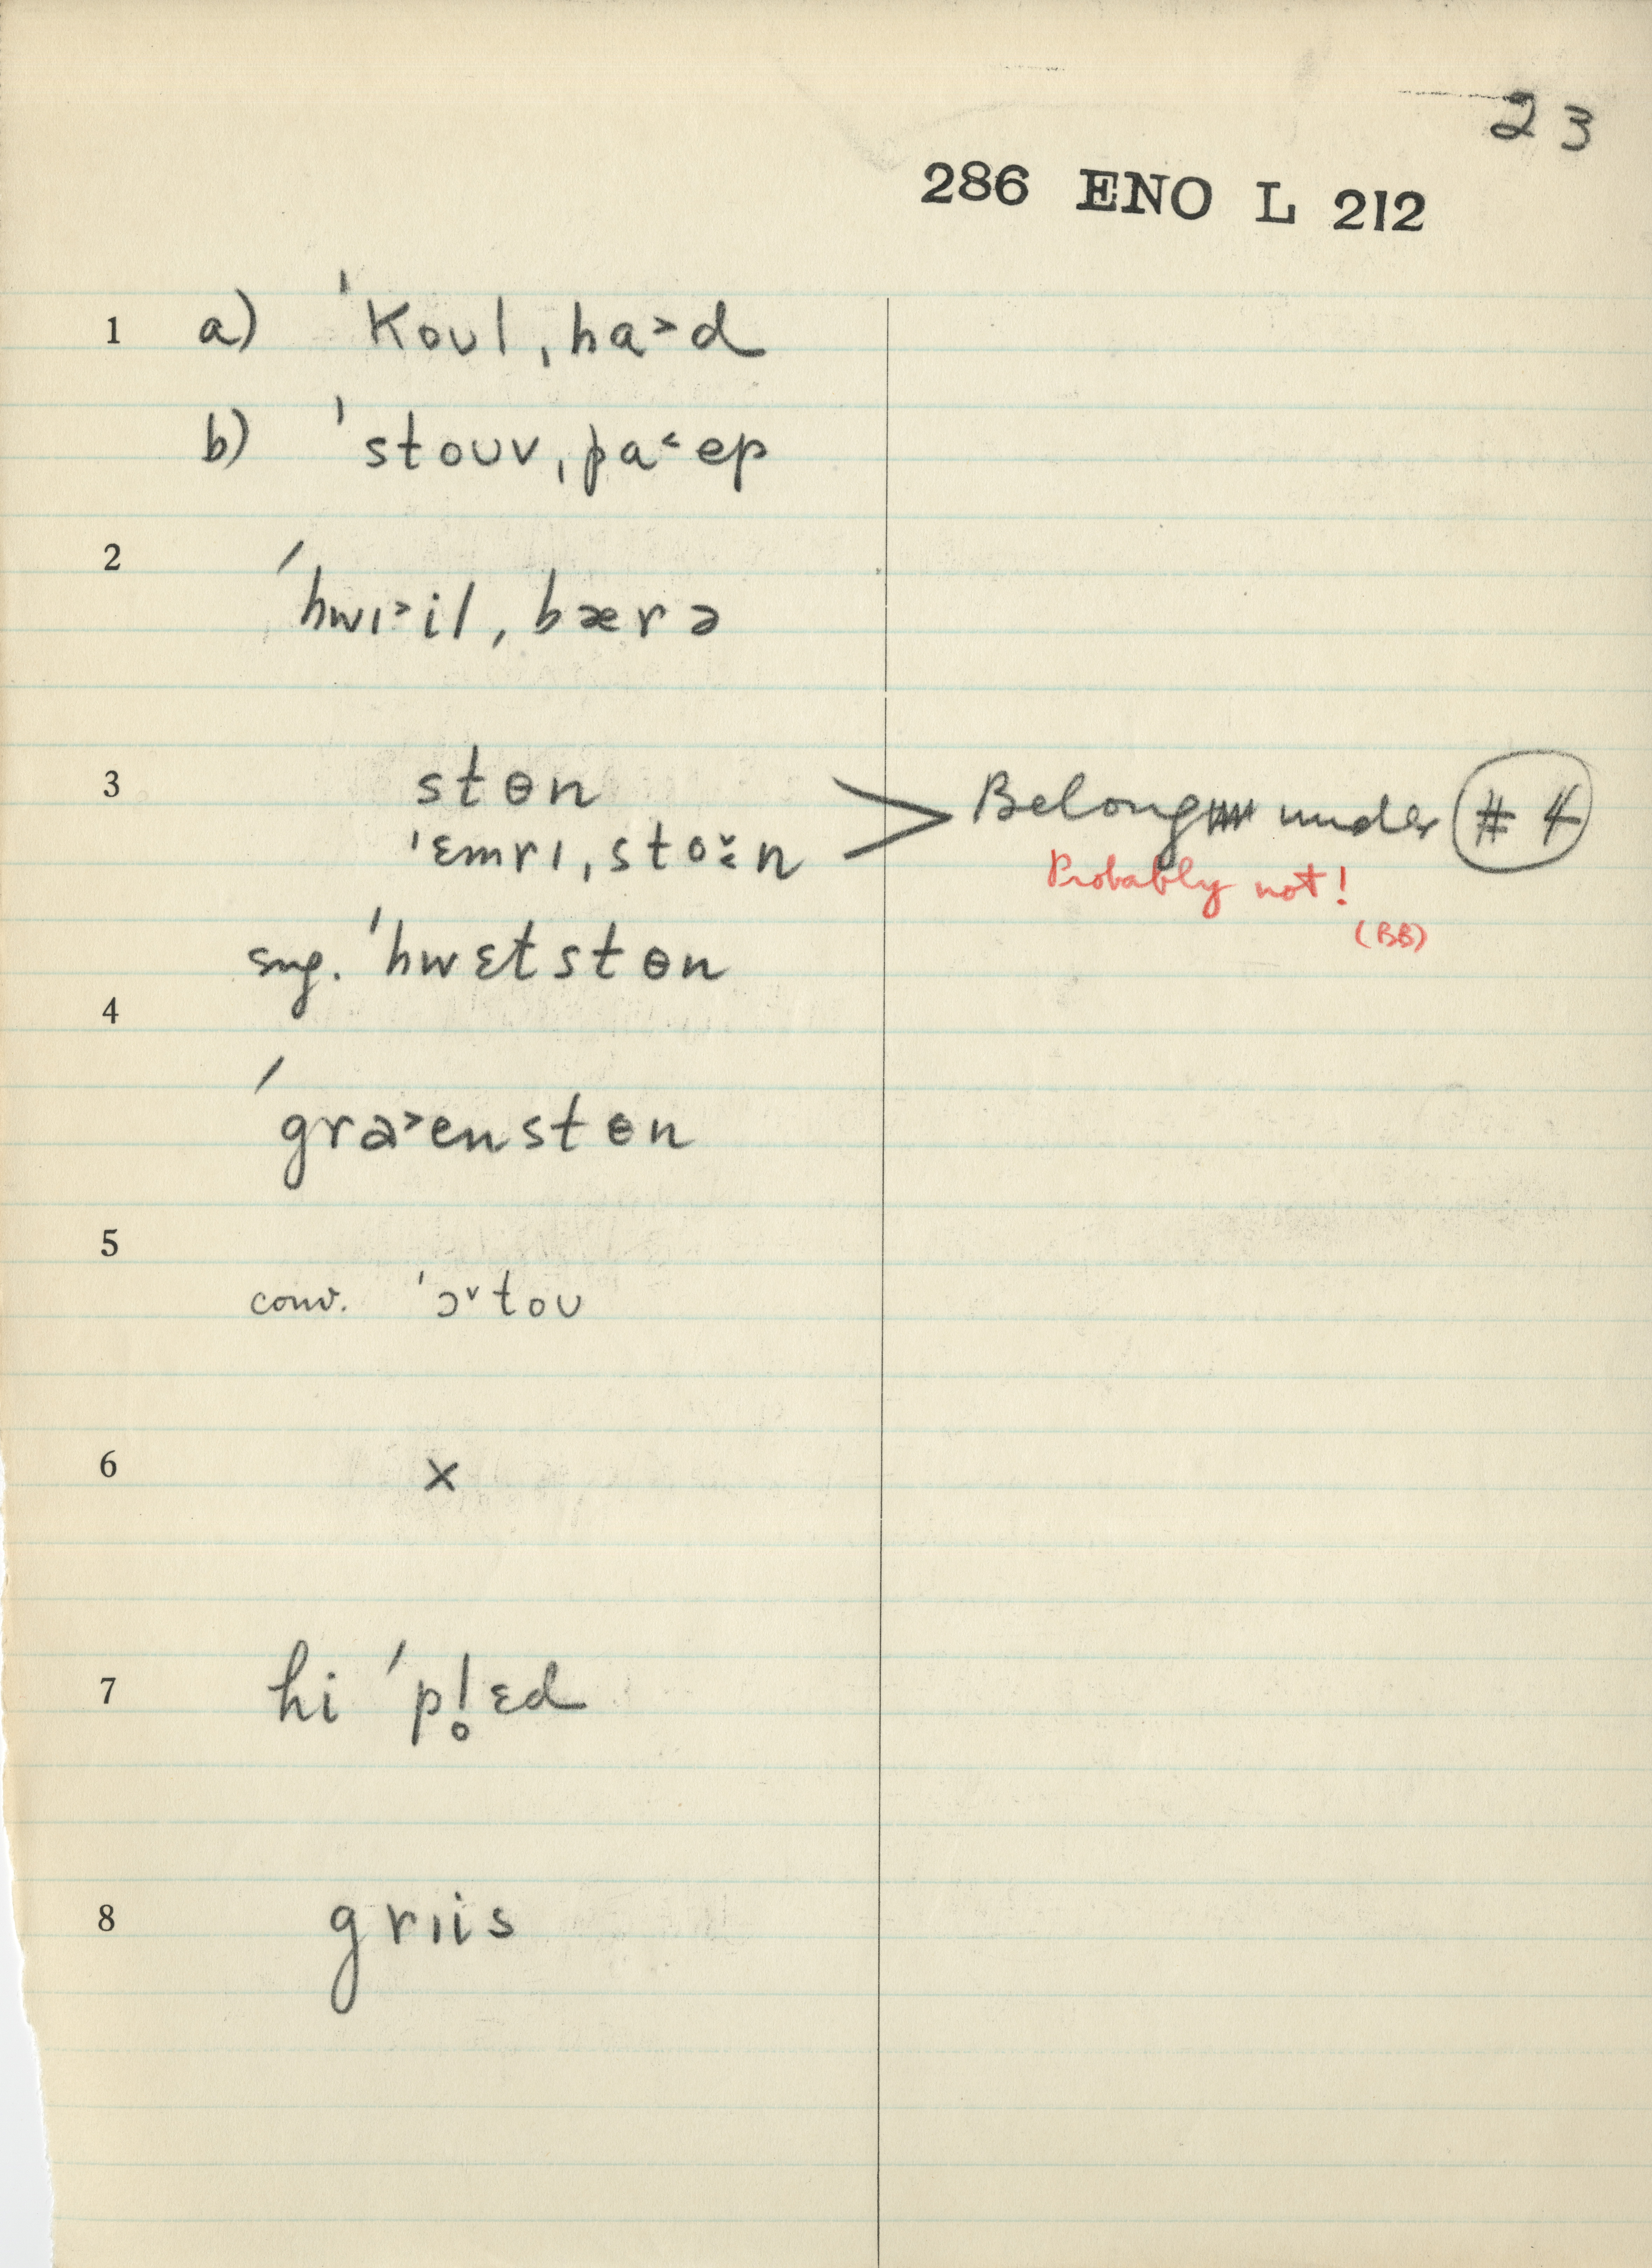 23
286 ENO L 212
1 a) ˈkoʊl ˌha˃d
b) ˈstoʊv ˌpa˂ep
2 ˈhwɪ˃il ˌbærə
3 stɵn
ˈɛmrɪ ˌstoɤ̆n > Belong under #4
Probably not!
(BB)
4 sug. ˈhwɛtstɵn
ˈgra˃enstɵn
5 conv. ˈɔ˅toʊ
6 x
7 hi ˈpl̥ɛd
8 grɪis